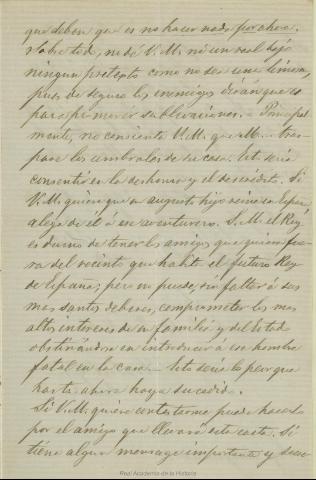 que deben que es no hacer nada por ahora.
Sobre todo, no dé V. M. ni un real bajo
ningun pretesto como no sea una limosna,
pues de seguro los enemigos dirán que es
para promover sublevaciones. - Principal-
mente, no consienta V. M. que M... tras-
pase los umbrales de su casa. Esto seria
consentir en la deshonra y el descrédito. Si
V. M. quiere que su augusto hijo reine en España
aleje de él á ese aventurero. S. M. el Rey
es dueño de tener los amigos que quiera fue-
ra del recinto que habite el futuro Rey
de España; pero no puede, sin faltar á sus
mas santos deberes, comprometer los mas
altos intereses de su familia y del Estado
obstinándose en introducir á ese hombre
fatal en la casa. - Esto seria lo peor que
hasta ahora haya sucedido.
Si V. M. quiere contestarme puede hacerlo
por el amigo que llevará esta carta. Si
tiene algun mensage importante y
Real Academia de la Historia